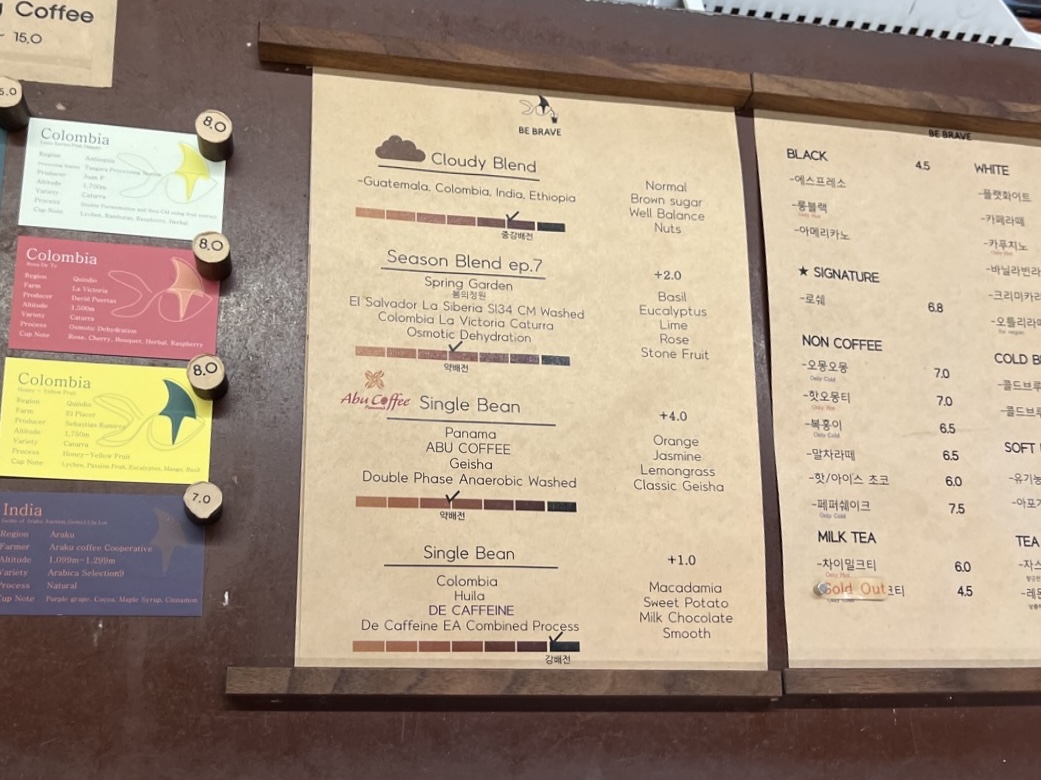 Coffee
15.0
5.0
8.0
Colombia
Region Antioquia
Producer Juan P
Altitude 1,700m
Variety Caturra
Cup Note Lychee, Rambutan, Raspberry, Herbal
8.0
Colombia
Region Quindio
Farm La Victoria
Producer David Puertas
Altitude 1,500m
Variety Caturra
Process Osmotic Dehydration
Cup Note Rose, Cherry, Bouquet, Herbal, Raspberry
8.0
Colombia
Honey - Yellow Fruit
Region Quindio
Farm El Placer
Producer Sebastian Ramirez
Altitude 1,750m
Variety Caturra
Process Honey-Yellow Fruit
Cup Note Lychee, Passion Fruit, Eucalyptus, Mango, Basil
7.0
India
Region Araku
Farmer Araku coffee Cooperative
Altitude 1,099m-1,299m
Variety Arabica Selection9
Process Natural
Cup Note Purple grape, Cocoa, Maple Syrup, Cinnamon
BE BRAVE
Cloudy Blend
-Guatemala, Colombia, India, Ethiopia
중강배전
Normal
Brown sugar
Well Balance
Nuts
Season Blend ep.7
Spring Garden
봄의정원
El Salvador La Siberia Sl34 CM Washed
Colombia La Victoria Caturra
Osmotic Dehydration
약배전
+2.0
Basil
Eucalyptus
Lime
Rose
Stone Fruit
Abu Coffee Single Bean
Panama
ABU COFFEE
Geisha
Double Phase Anaerobic Washed
약배전
+4.0
Orange
Jasmine
Lemongrass
Classic Geisha
Single Bean
Colombia
Huila
DE CAFFEINE
De Caffeine EA Combined Process
강배전
+1.0
Macadamia
Sweet Potato
Milk Chocolate
Smooth
BE BRAVE
BLACK 4.5
-에스프레소
-롱블랙
Only Hot
-아메리카노
★ SIGNATURE
-로쉐 6.8
NON COFFEE
-오몽오몽 7.0
Only Cold
-핫오몽티 7.0
Only Hot
-복홍이 6.5
Only Cold
-말차라떼 6.5
-핫/아이스 초코 6.0
-페퍼쉐이크 7.5
Only Cold
MILK TEA
-차이밀크티 6.0
Only Hot
Sold Out
크티 4.5
WHITE
-플랫화이트
-카페라떼
-카푸치노
-바닐라빈라
-크리미카라
-오틀리라떼
COLD B
-콜드브루
-콜드브루
SOFT
-유기농
-아포가
TEA
-자스
-레몬